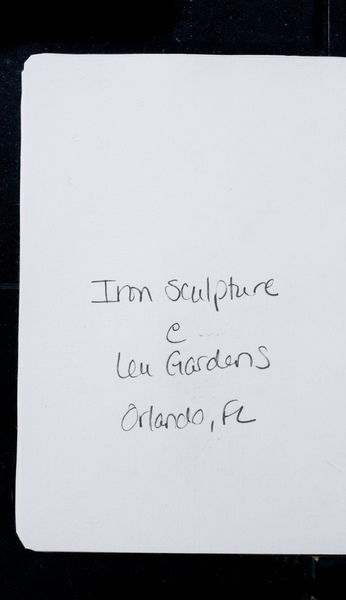 Iron Sculpture
@
Leu Gardens
Orlando, FL